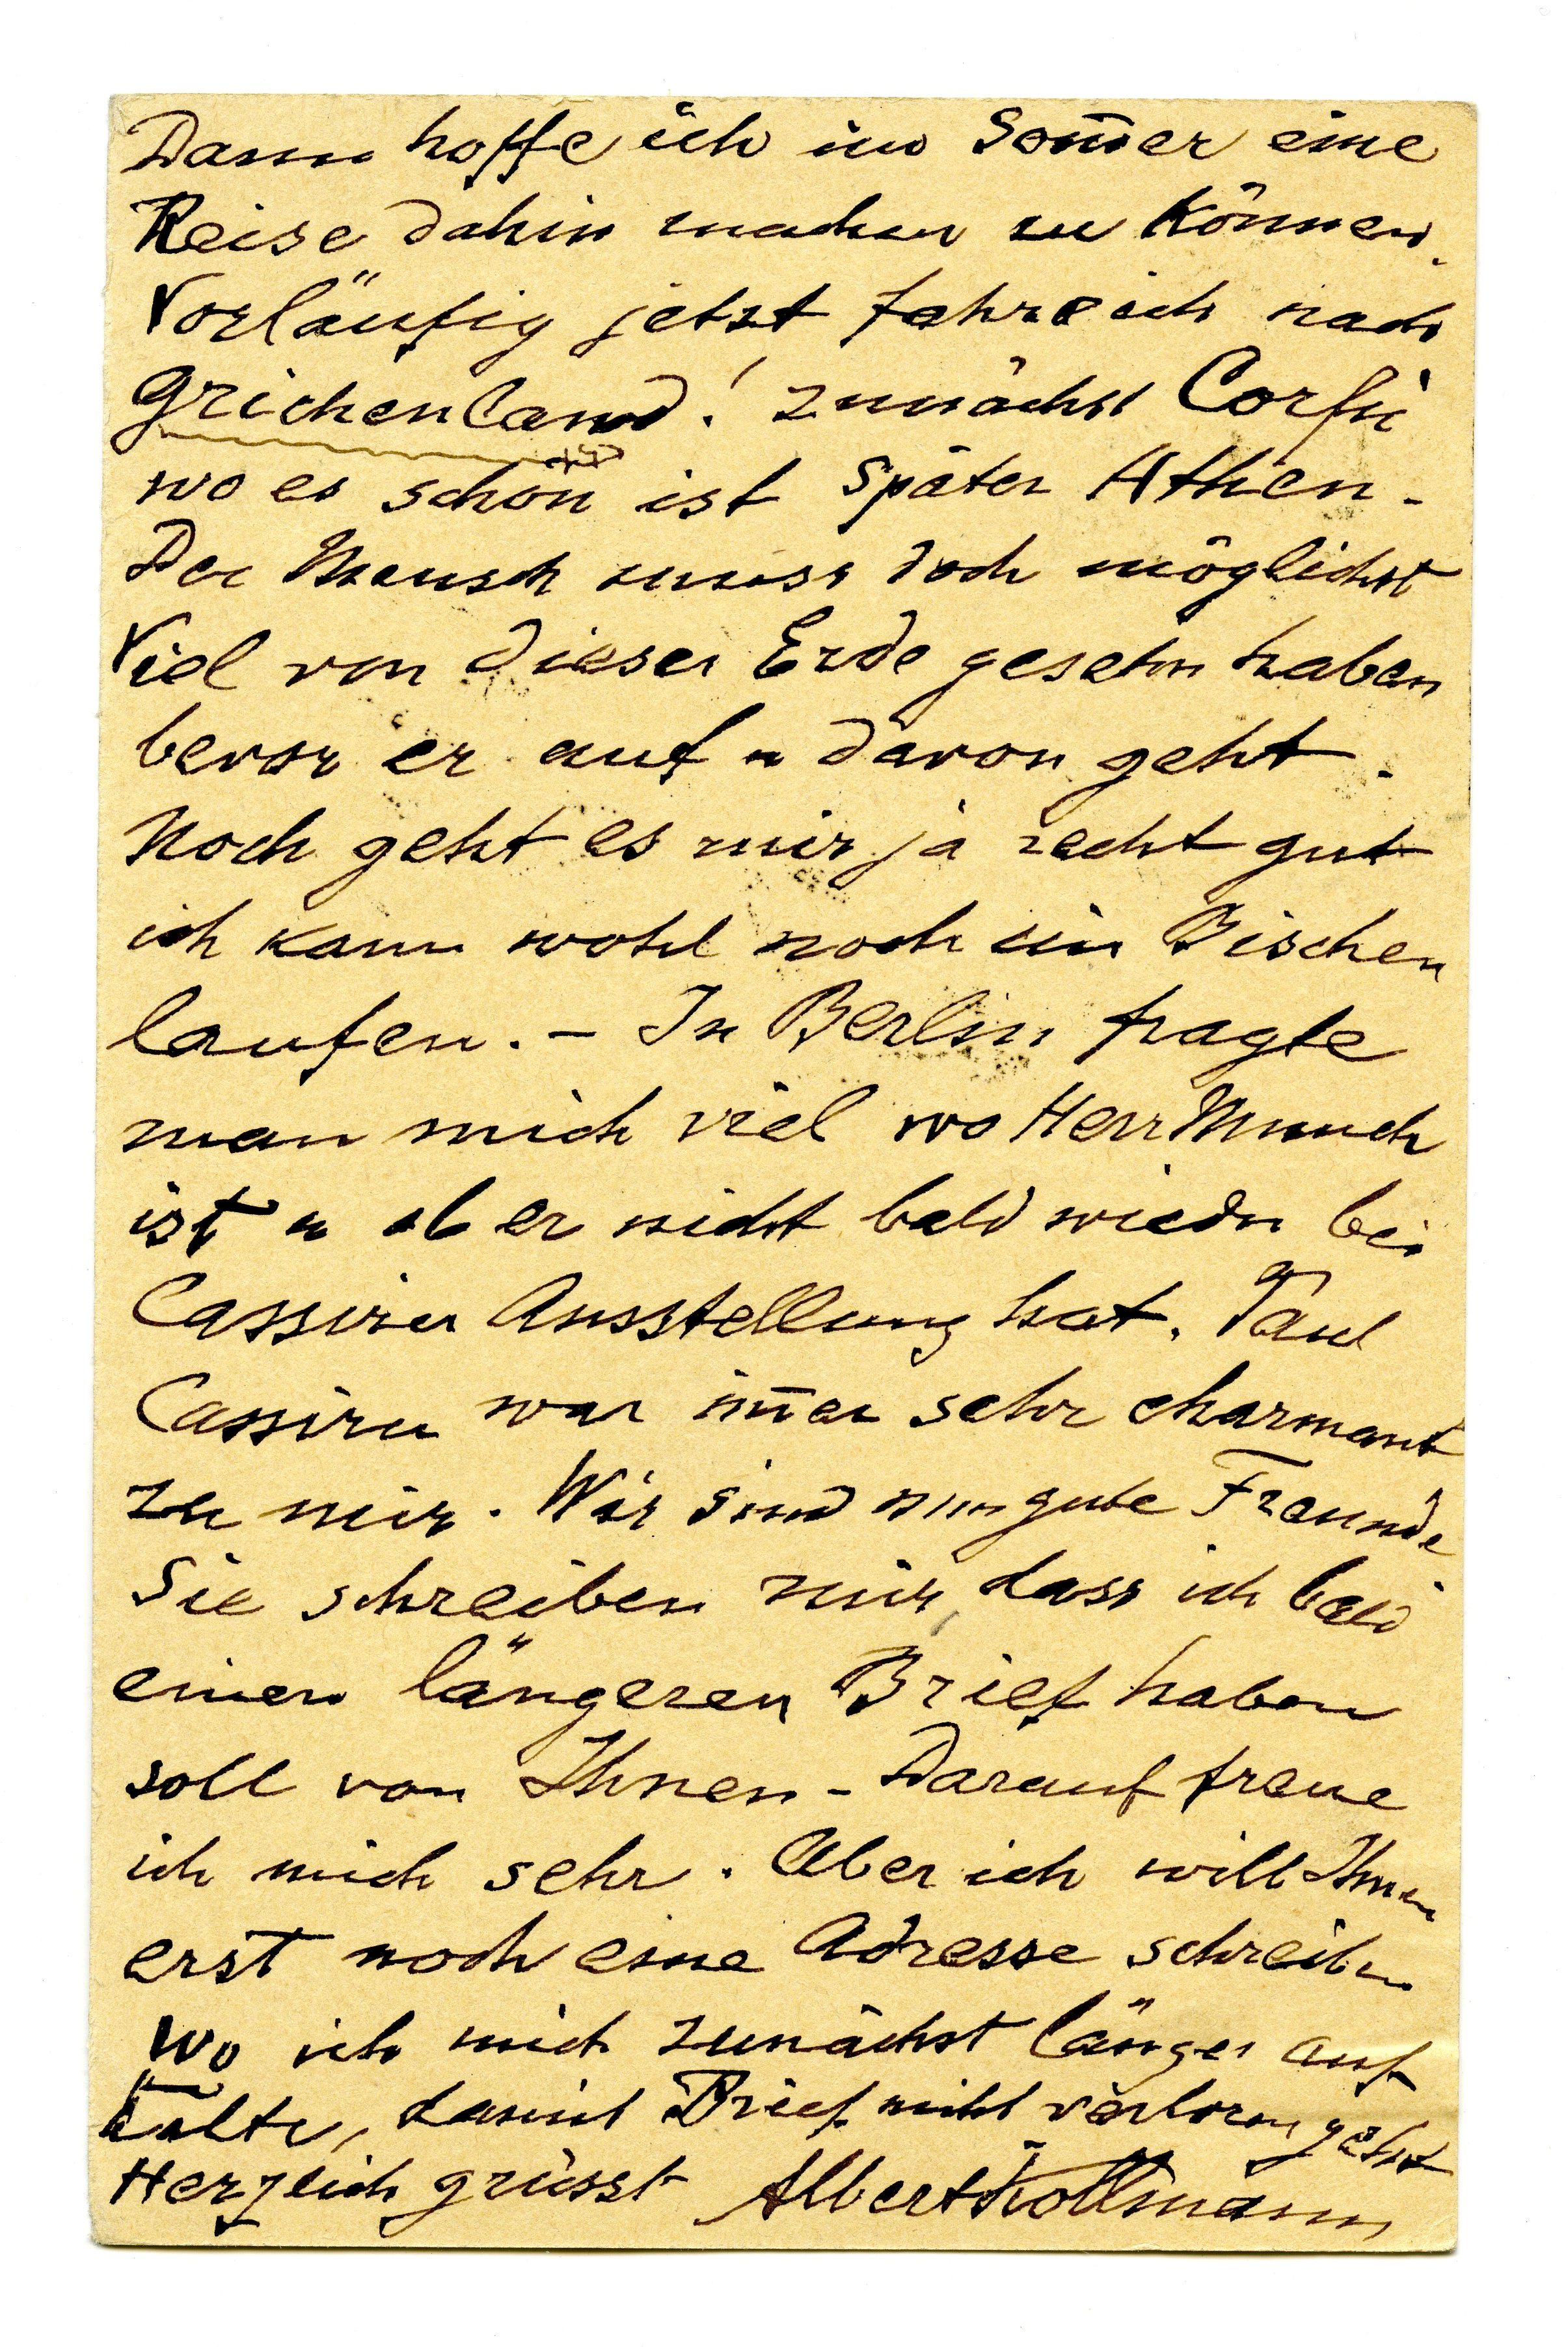 Dann hoffe ich im Som̅er eine
Reise dahin machen zu Können.
Vorläufig jetzt fahre ich nach
Grichenland! zunächst Corfu
wo es schön ist später Athen -
Der Mensch muss doch möglichst
Viel von dieser Erde gesehn haben
bevor er auf u davon geht.
Noch geht es mir ja recht gut
ich kann wohl noch ein Bischen
laufen. - In Berlin fragte
man mich viel wo Herr Munch
ist u ob er nicht bald wieder bei
Cassirer Ausstellung hat. Paul
Cassirer war im̅er sehr charmant
zu mir. Wir sind nun gute Freunde
Sie schreiben mir, dass ich bald
einen längeren Brief haben
soll von Ihnen - Darauf freue
ich mich sehr. Aber ich will Ihnen
erst noch eine Adresse schreiben
wo ich mich zunächst länger auf
halte, damit Brief nicht verloren geht
Herzlich grüsst Albert Kollmann